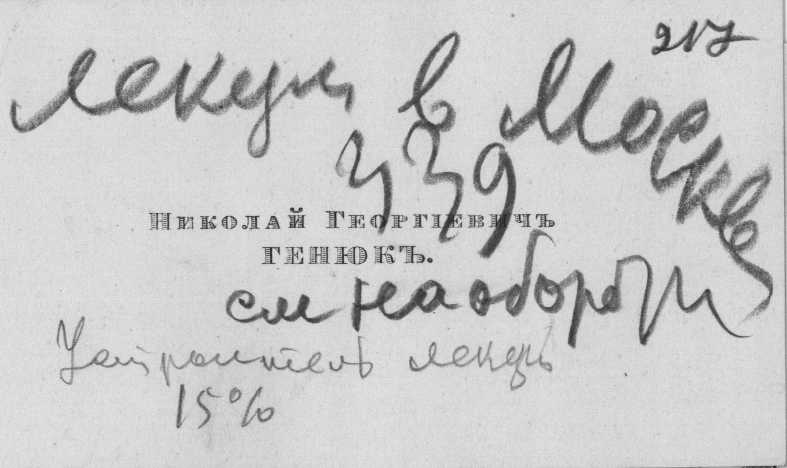 217
лекции в Москве
339
Николай Георгіевичъ
ГЕНЮКЪ.
см на обороти
Устроитель лекц
15%